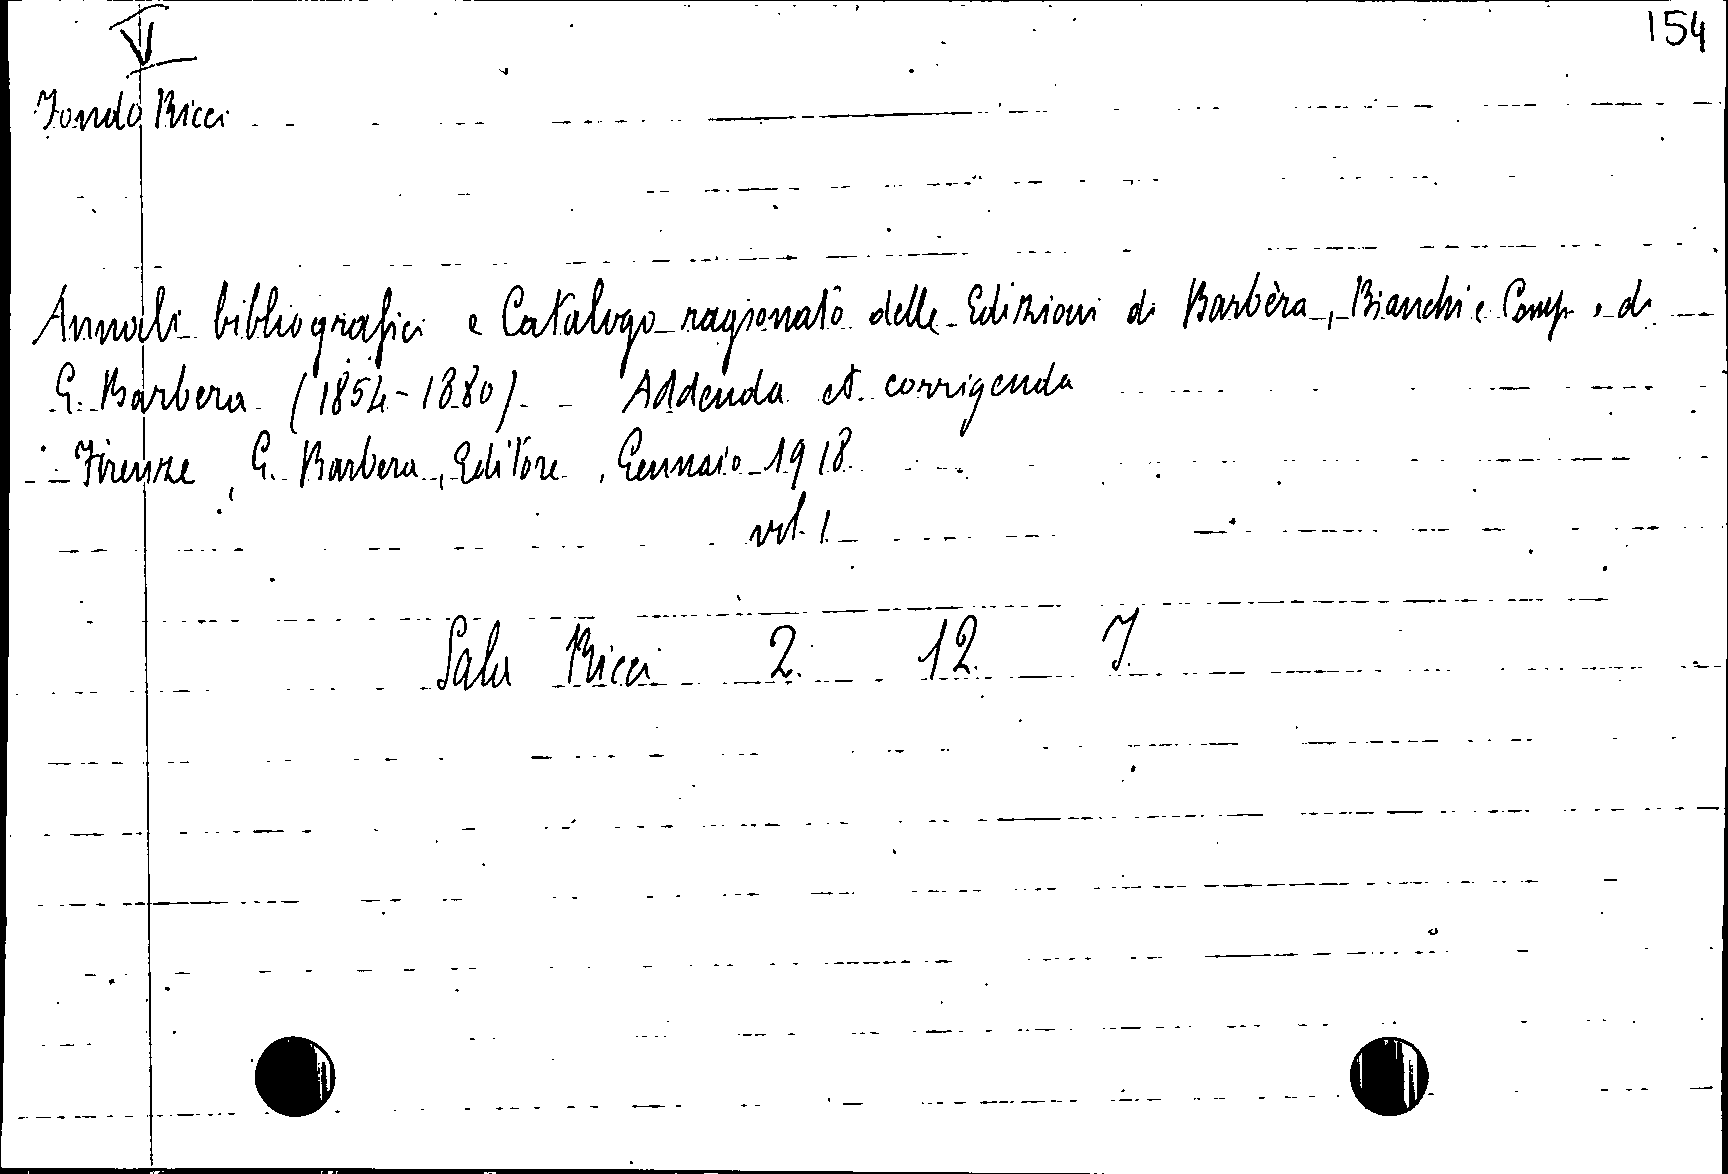 VI
154
Fondo Ricci
Annali bibliografici e Catalogo ragionato delle Edizioni di Barbèra, Bianchi e Comp. e di
G. Barbera (1854-1880). Addenda et corrigenda
Firenze, G. Barbera, Editore, Gennaio 1918
vol. 1
Sala Ricci 2. 12. 7.